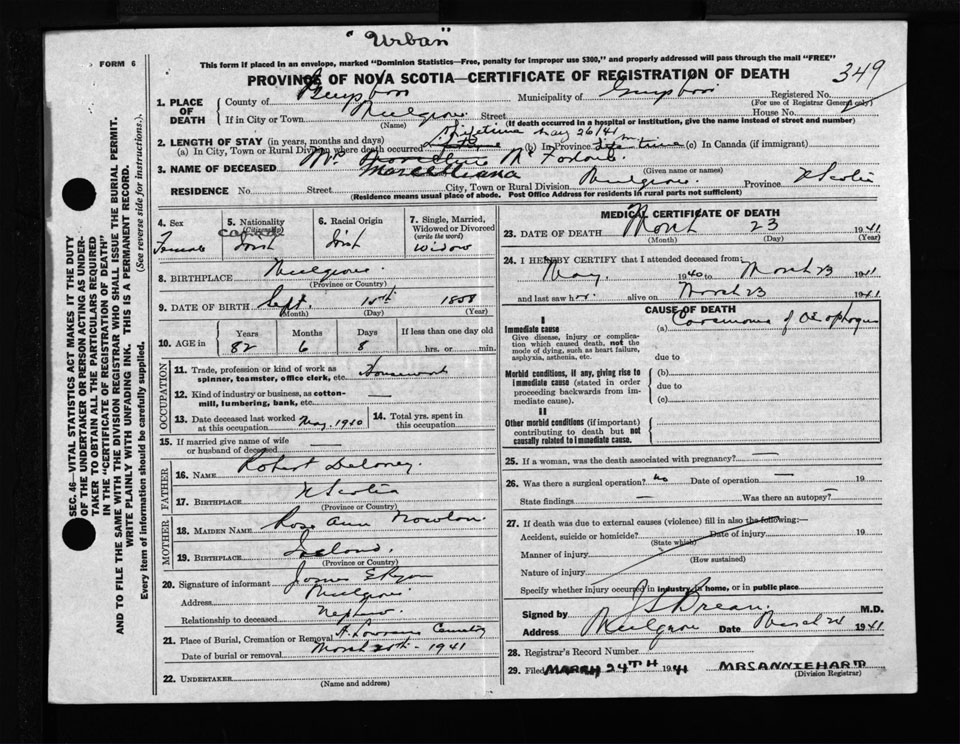 "Urban"
FORM 6
This form if placed in an envelope, marked "Dominion Statistics—Free, penalty for improper use $300," and properly addressed will pass through the mail "FREE"
PROVINCE OF NOVA SCOTIA—CERTIFICATE OF REGISTRATION OF DEATH
349
1. PLACE OF DEATH
County of Guysboro Municipality of Guysboro Registered No.
(For use of Registrar General only)
If in City or Town Mulgrave Street House No.
(Name) (If death occurred in a hospital or institution, give the name instead of street and number)
Lifetime May 26/41
2. LENGTH OF STAY (in years, months and days)
(a) In City, Town or Rural Division where death occurred (b) In Province Lifetime (c) In Canada (if immigrant)
3. NAME OF DECEASED Mrs
(Given name or names)
RESIDENCE No. Street City, Town or Rural Division Mulgrave Province N Scotia
(Residence means usual place of abode. Post Office Address for residents in rural parts not sufficient)
4. Sex Female
5. Nationality (Citizenship) Irish
6. Racial Origin Irish
7. Single, Married, Widowed or Divorced (write the word) Widow
8. BIRTHPLACE Mulgrave
(Province or Country)
9. DATE OF BIRTH Sept. 1858
(Month) (Day) (Year)
10. AGE in Years 82 Months 6 Days 8 If less than one day old hrs. or min.
OCCUPATION
11. Trade, profession or kind of work as spinner, teamster, office clerk, etc. Housework
12. Kind of industry or business, as cotton-mill, lumbering, bank, etc. —
13. Date deceased last worked at this occupation May, 1940
14. Total yrs. spent in this occupation
15. If married give name of wife or husband of deceased —
FATHER
16. NAME Robert Delaney
17. BIRTHPLACE N Scotia
(Province or Country)
MOTHER
18. MAIDEN NAME Rose Ann Nowlan
19. BIRTHPLACE Ireland
(Province or Country)
20. Signature of informant James E Ryan
Address Mulgrave
Relationship to deceased Nephew
21. Place of Burial, Cremation or Removal Cemetery
Date of burial or removal March 1941
22. UNDERTAKER
(Name and address)
MEDICAL CERTIFICATE OF DEATH
23. DATE OF DEATH March 23 1941
(Month) (Day) (Year)
24. I HEREBY CERTIFY that I attended deceased from:
May 1940 to March 23 1941
and last saw her alive on March 23 1941
CAUSE OF DEATH
I
Immediate cause
Give disease, injury or complication which caused death, not the mode of dying, such as heart failure, asphyxia, asthenia, etc.
(a) Carcinoma of Oesophagus
due to
Morbid conditions, if any, giving rise to immediate cause (stated in order proceeding backwards from immediate cause).
(b)
due to
(c)
II
Other morbid conditions (if important) contributing to death but not causally related to immediate cause.
25. If a woman, was the death associated with pregnancy? —
26. Was there a surgical operation? no Date of operation — 19
State findings — Was there an autopsy? —
27. If death was due to external causes (violence) fill in also the following:—
Accident, suicide or homicide? Date of injury 19
(State which)
Manner of injury
(How sustained)
Nature of injury
Specify whether injury occurred in industry, in home, or in public place
Signed by M.D.
Address Mulgrave Date March 24 1941
28. Registrar's Record Number
29. Filed MARCH 24TH 1941 MRS ANNIE HART
(Division Registrar)
SEC. 46—VITAL STATISTICS ACT MAKES IT THE DUTY
OF THE UNDERTAKER OR PERSON ACTING AS UNDERTAKER
TO OBTAIN ALL THE PARTICULARS REQUIRED
IN THE "CERTIFICATE OF REGISTRATION OF DEATH"
AND TO FILE THE SAME WITH THE DIVISION REGISTRAR WHO SHALL ISSUE THE BURIAL PERMIT.
WRITE PLAINLY WITH UNFADING INK. THIS IS A PERMANENT RECORD.
Every item of information should be carefully supplied. (See reverse side for instructions.)